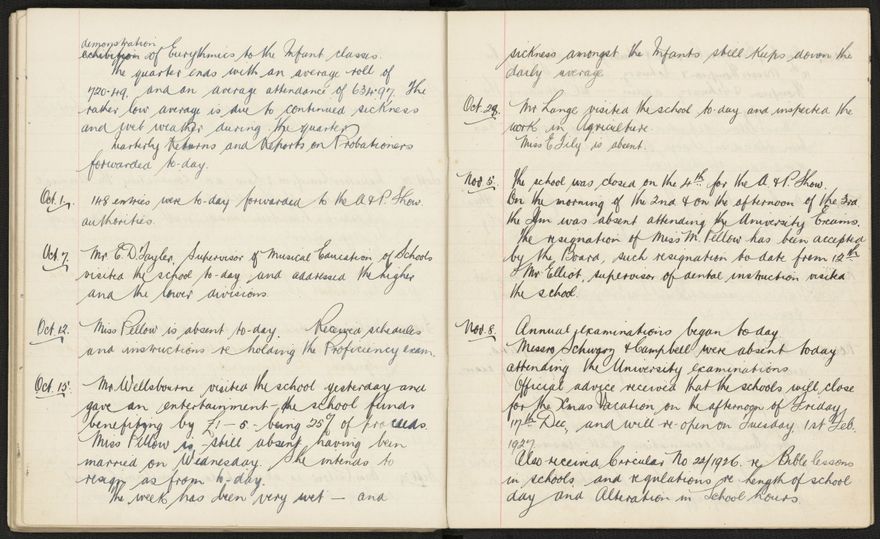 demonstration
of Eurythmics to the Infant classes.
The quarter ends with an average roll of
720.49. and an average attendance of 634.97. The
rather low average is due to continued sickness
and wet weather during the quarter.
Quarterly Returns and Reports on Probationers
forwarded to-day.
Oct. 1. 148 entries were to-day forwarded to the A & P. Show
authorities.
Oct. 7. Mr. E. D. Tayler, Supervisor of Musical Education of Schools
visited the school to-day and addressed the higher
and the lower divisions.
Oct. 12. Miss Pellow is absent to-day. Received schedules
and instructions re holding the Proficiency exam.
Oct. 15. Mr. Wellsbourne visited the school yesterday and
gave an entertainment - the school funds
benefiting by £1 - 5 - being 25% of proceeds.
Miss Pellow is still absent having been
married on Wednesday. She intends to
resign as from to-day.
The week has been very wet — and
sickness amongst the Infants still keeps down the
daily average.
Oct. 29. Mr Lange visited the school to-day and inspected the
work in Agriculture.
Miss E. is absent.
Nov. 5. The school was closed on the 4th for the A & P. Show.
On the morning of the 2nd & on the afternoon of the 3rd
the was absent attending the University Exams.
The resignation of Miss M. Pellow has been accepted
by the Board, such resignation to date from 12th
Mr Elliot, supervisor of dental instruction visited
the school.
Nov. 8. Annual examinations began to day
Messrs & Campbell were absent today
attending the University examinations
Official advice received that the schools will close
for the Xmas Vacation on the afternoon of Friday
17th Dec, and will re-open on Tuesday 1st Feb.
1927
Also received Circular No 24/1926. re Bible lessons
in schools and regulations re length of school
day and Alteration in School hours.